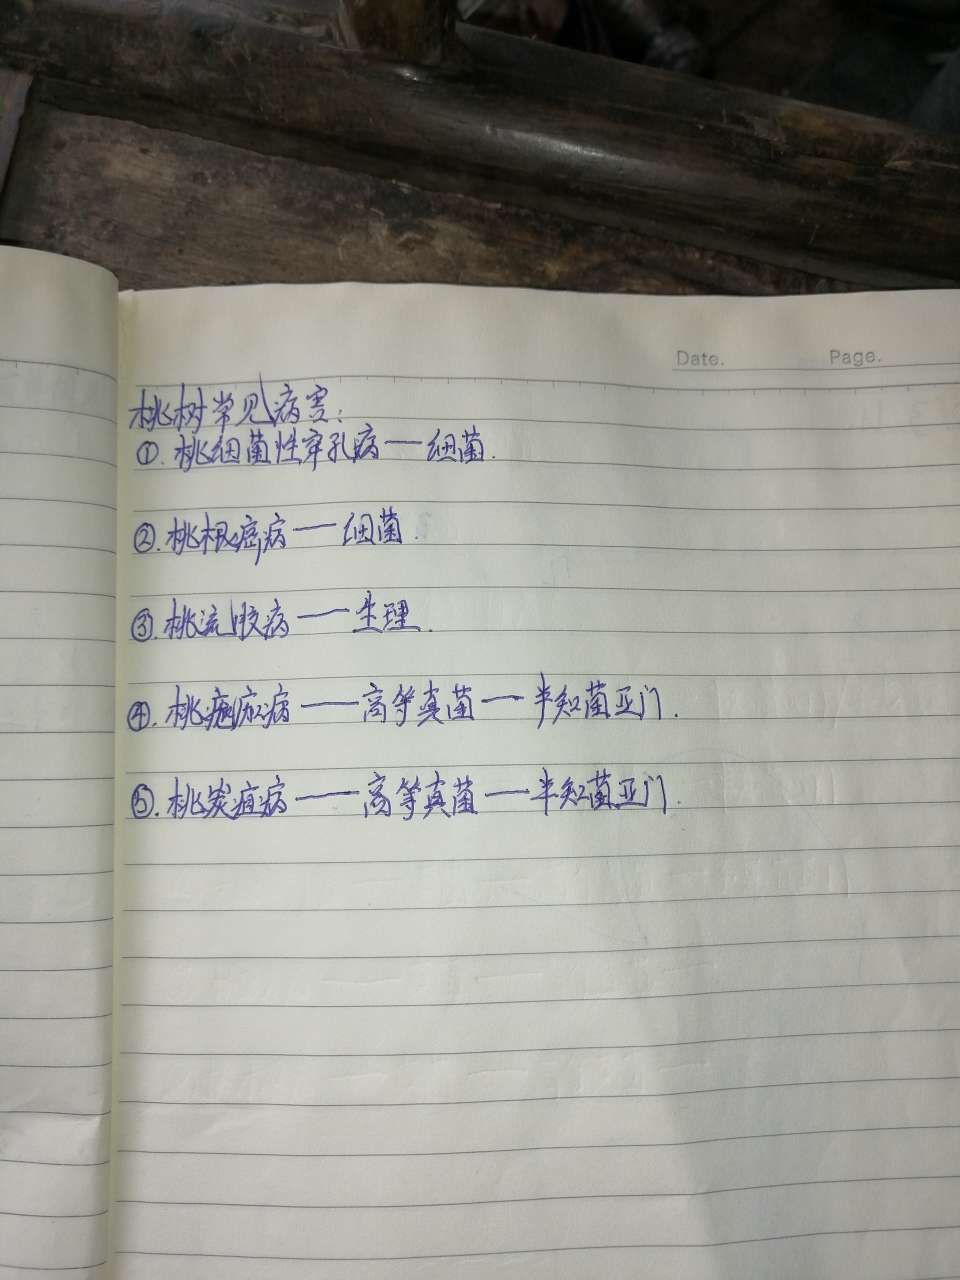 Date. Page.
桃树常见病害:
①. 桃细菌性穿孔病——细菌.
②. 桃根癌病——细菌.
③. 桃流胶病——生理.
④. 桃疮痂病——高等真菌——半知菌亚门.
⑤. 桃炭疽病——高等真菌——半知菌亚门.